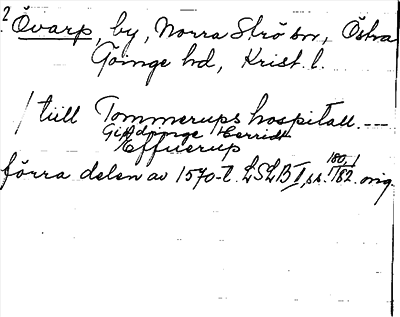 2 Övarp, by, Norra Strö sn, Östra
Göinge hd, Krist. l.
/ till Tommerups hospitall. ---
Giødinge Herridt
Effuerup
förra delen av 1570-t. LSLB II, s. 180, 1
182. orig.